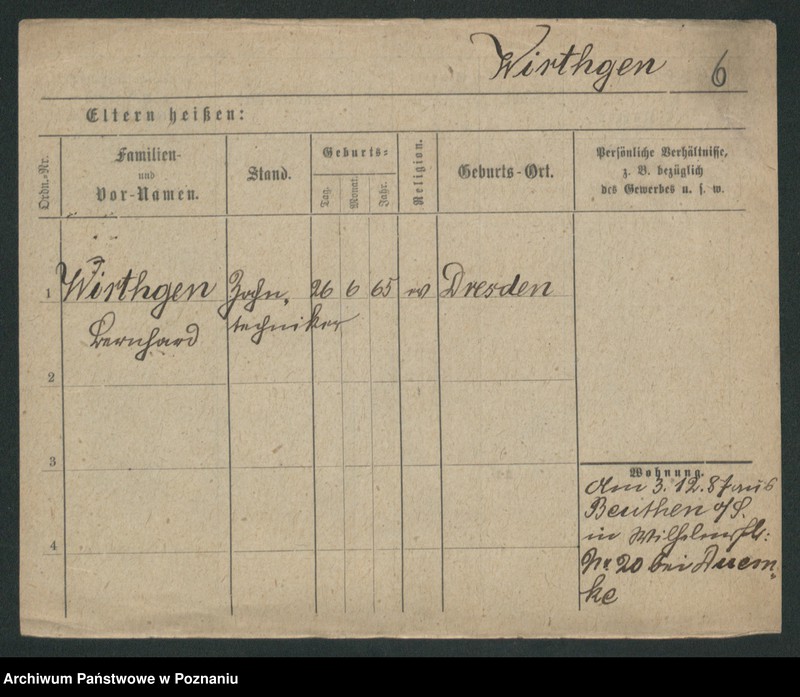 Wirthgen 6
Eltern heißen:
Ordn.-Nr.
Familien-
und
Vor-Namen.
Stand.
Geburts-
Tag.
Monat.
Jahr.
Religion.
Geburts-Ort.
Persönliche Verhältnisse,
z. B. bezüglich
des Gewerbes u. s. w.
1 Wirthgen Zahn- 26 6 65 ev Dresden
Bernhard techniker
2
3
4
Wohnung.
Am 3. 12. 87 aus
Beuthen o/S.
in Wilhelmstr:
Nr 20 bei
Archiwum Państwowe w Poznaniu